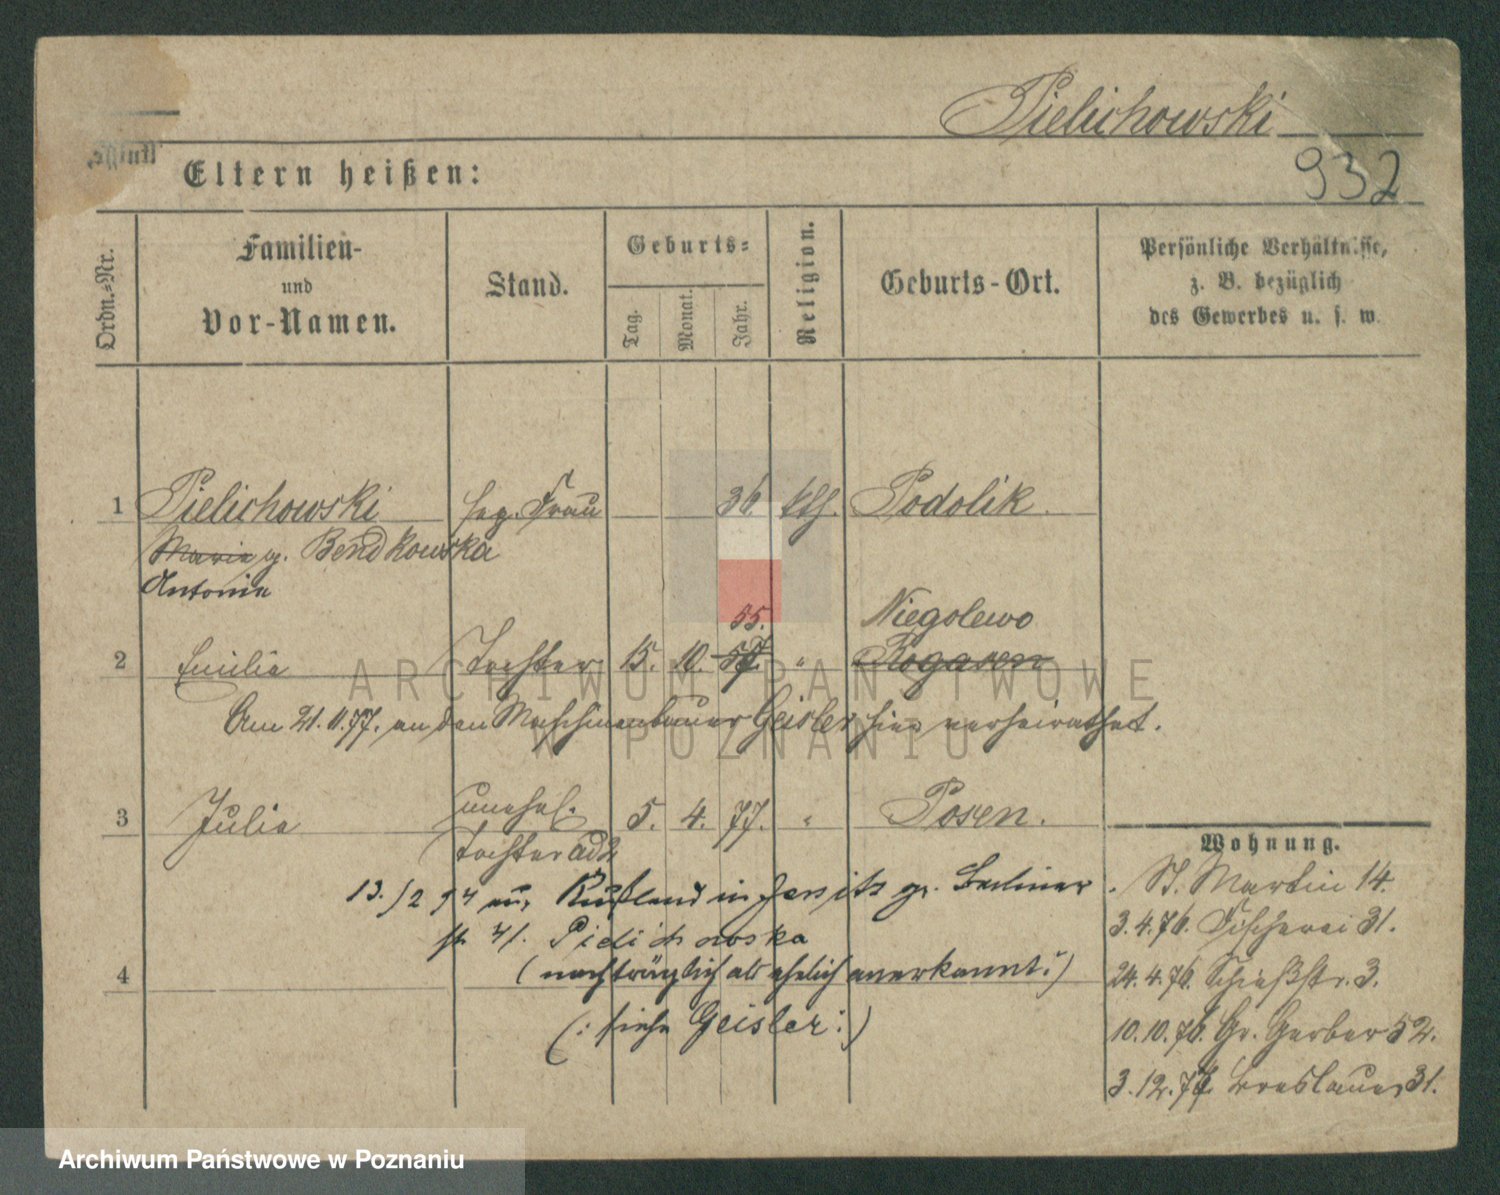 Pielichowski
932
Eltern heißen:
Ordn.-Nr.
Familien-
und
Vor-Namen.
Stand.
Geburts-
Tag.
Monat.
Jahr.
Religion.
Geburts-Ort.
Persönliche Verhältnisse,
z. B. bezüglich
des Gewerbes u. s. w.
1 Pielichowski Frau 36. kth. Podolik.
Maria g. Bendkowska
Antonia
55. Niegolewo
2 Emilie Tochter 15. 10. 57. " Rogasen
Am 21.11.77. an den Maschinenbauer Geisler hier verheirathet.
3 Julie unehel. 5. 4. 77. " Posen.
Tochter ad 2
Wohnung.
13./2 94 aus Rußland in Jersitz gr. Berliner
str. 41. Pielichowska
(nachträglich als ehelich anerkannt:)
4
(: siehe Geisler :)
St. Martin 14.
3.4.76. Fischerei 31.
24.4.76. Schießstr. 3.
10.10.76. Gr. Gerber 52.
3.12.77. Breslauer 31.
ARCHIWUM PAŃSTWOWE
W POZNANIU
Archiwum Państwowe w Poznaniu